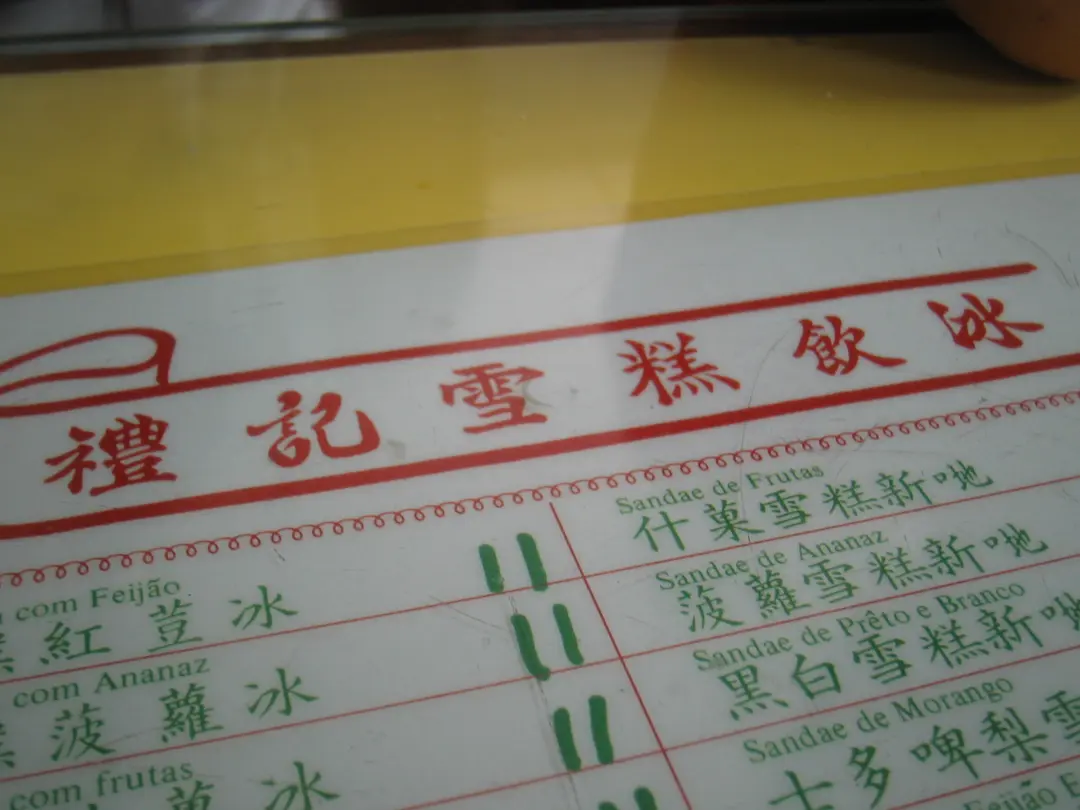 禮記雪糕飲冰
com Feijão
紅荳冰
11
com Ananaz
菠蘿冰
11
com frutas
菓冰
11
11
Sandae de Frutas
什菓雪糕新哋
Sandae de Ananaz
菠蘿雪糕新哋
Sandae de Prêto e Branco
黑白雪糕新哋
Sandae de Morango
士多啤梨雪